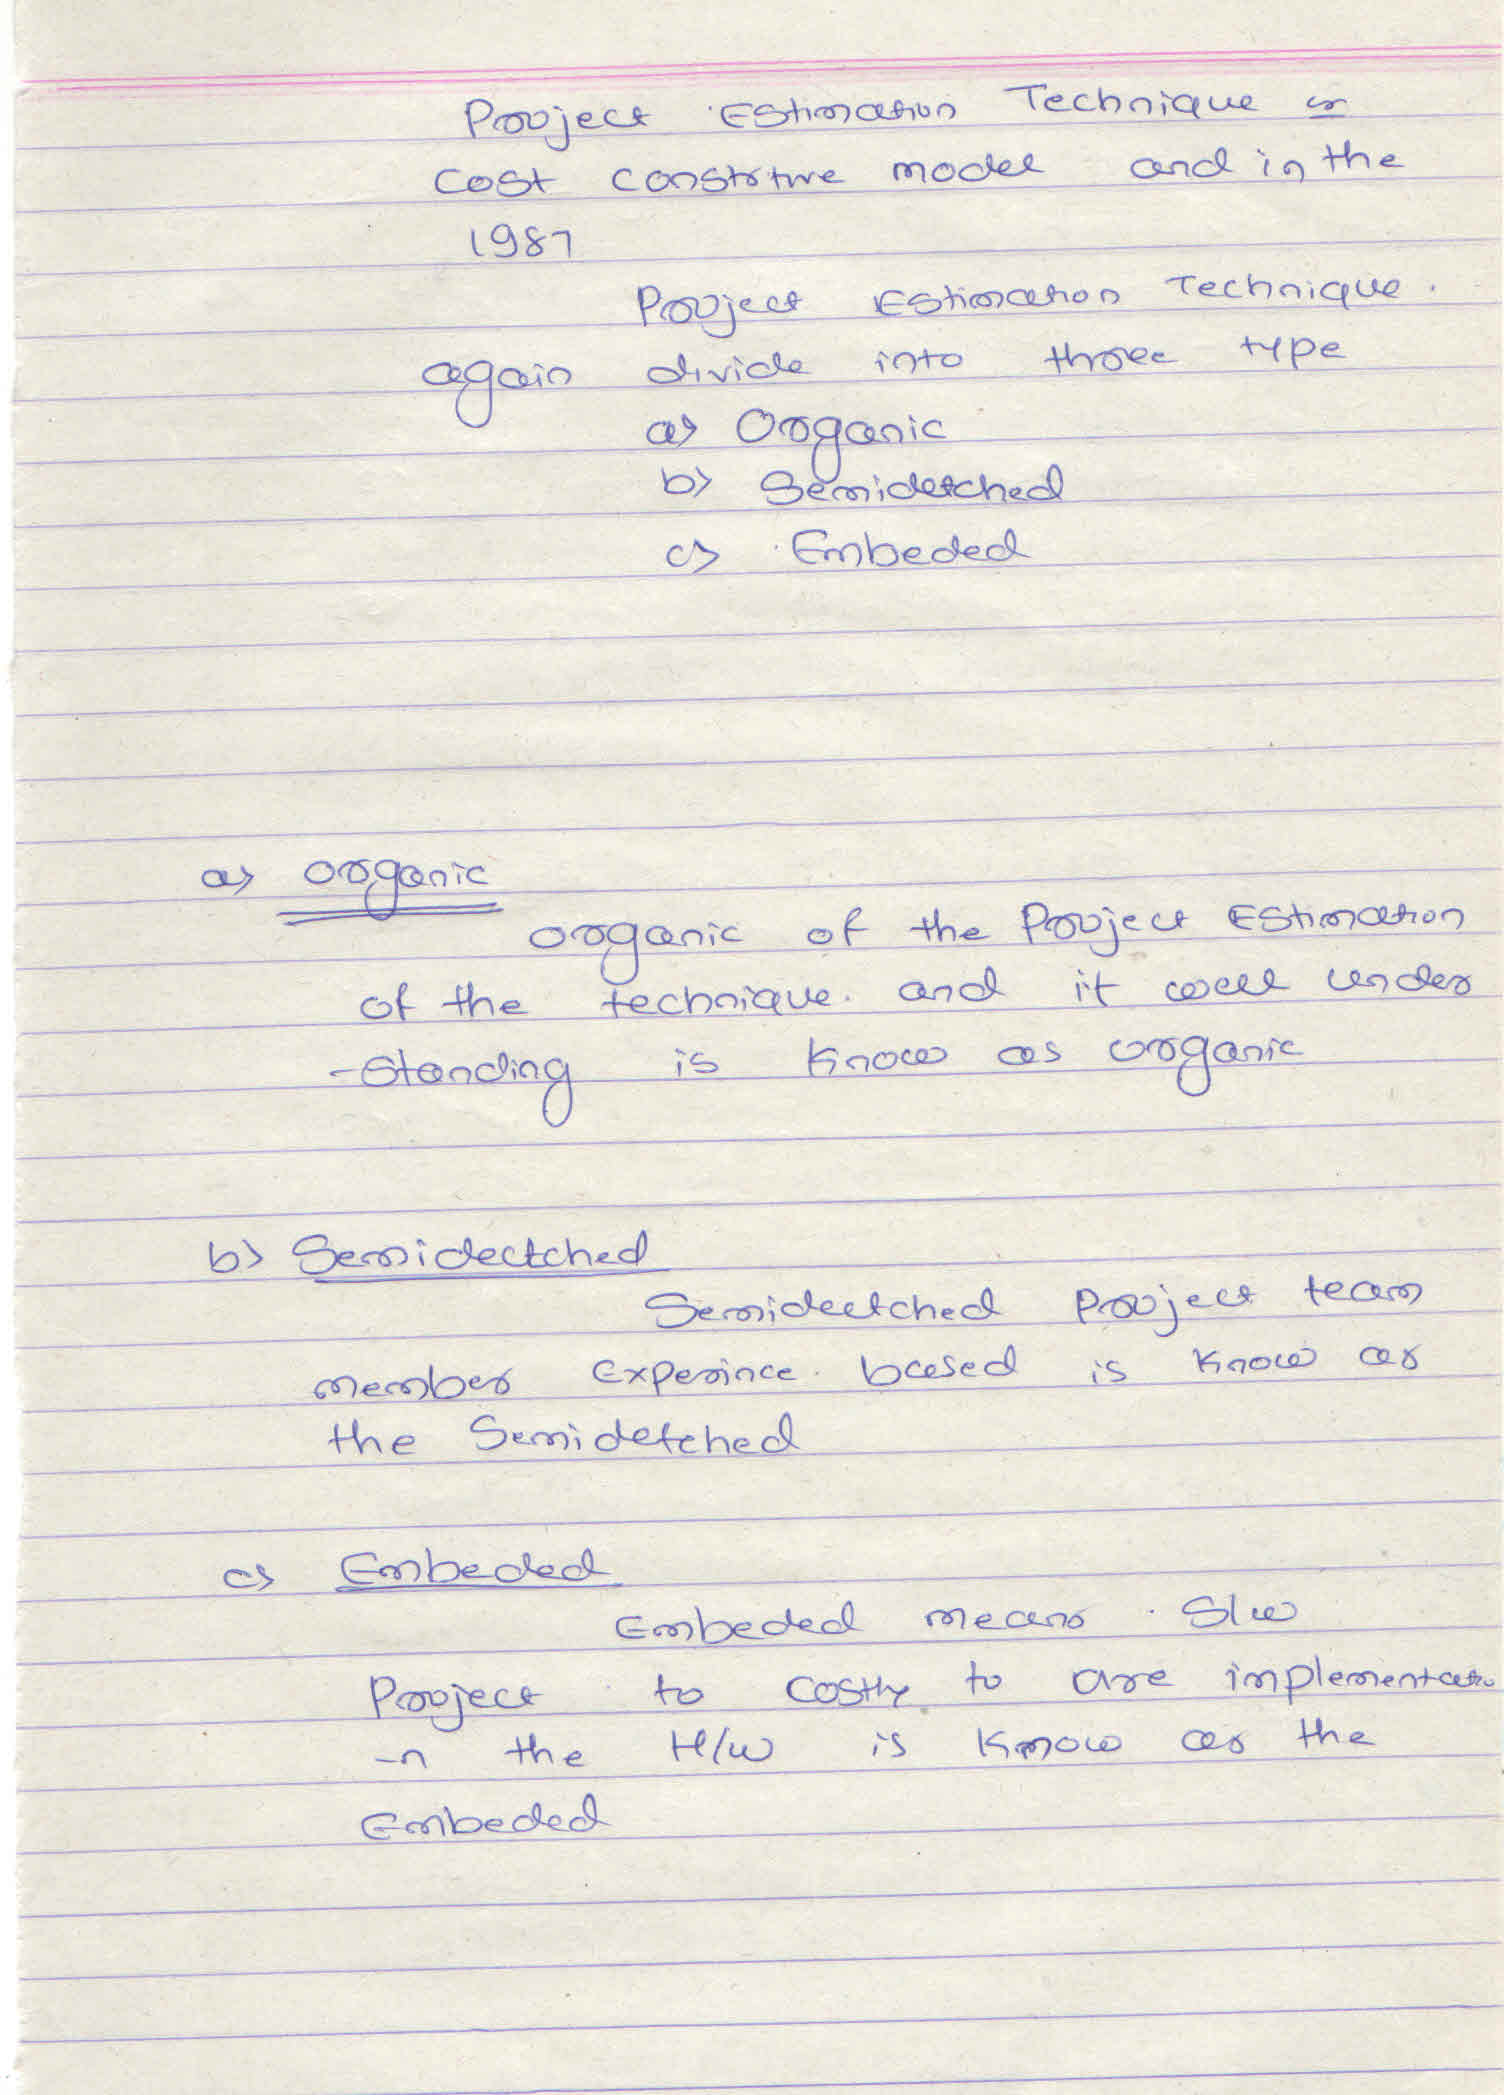 Project Estimation Technique is
cost constrtive model and in the
1987
Project Estimation Technique.
again divide into three type
a) Organic
b) Semidetched
c) Embeded
a) organic
organic of the Project Estimation
of the technique. and it well under
-standing is know as organic
b) Semidectched
Semidectched Project team
member experince. based is know as
the Semidetched
c) Embeded
Embeded means S/w
Project to costly to are implementatio
-n the H/w is know as the
Embeded